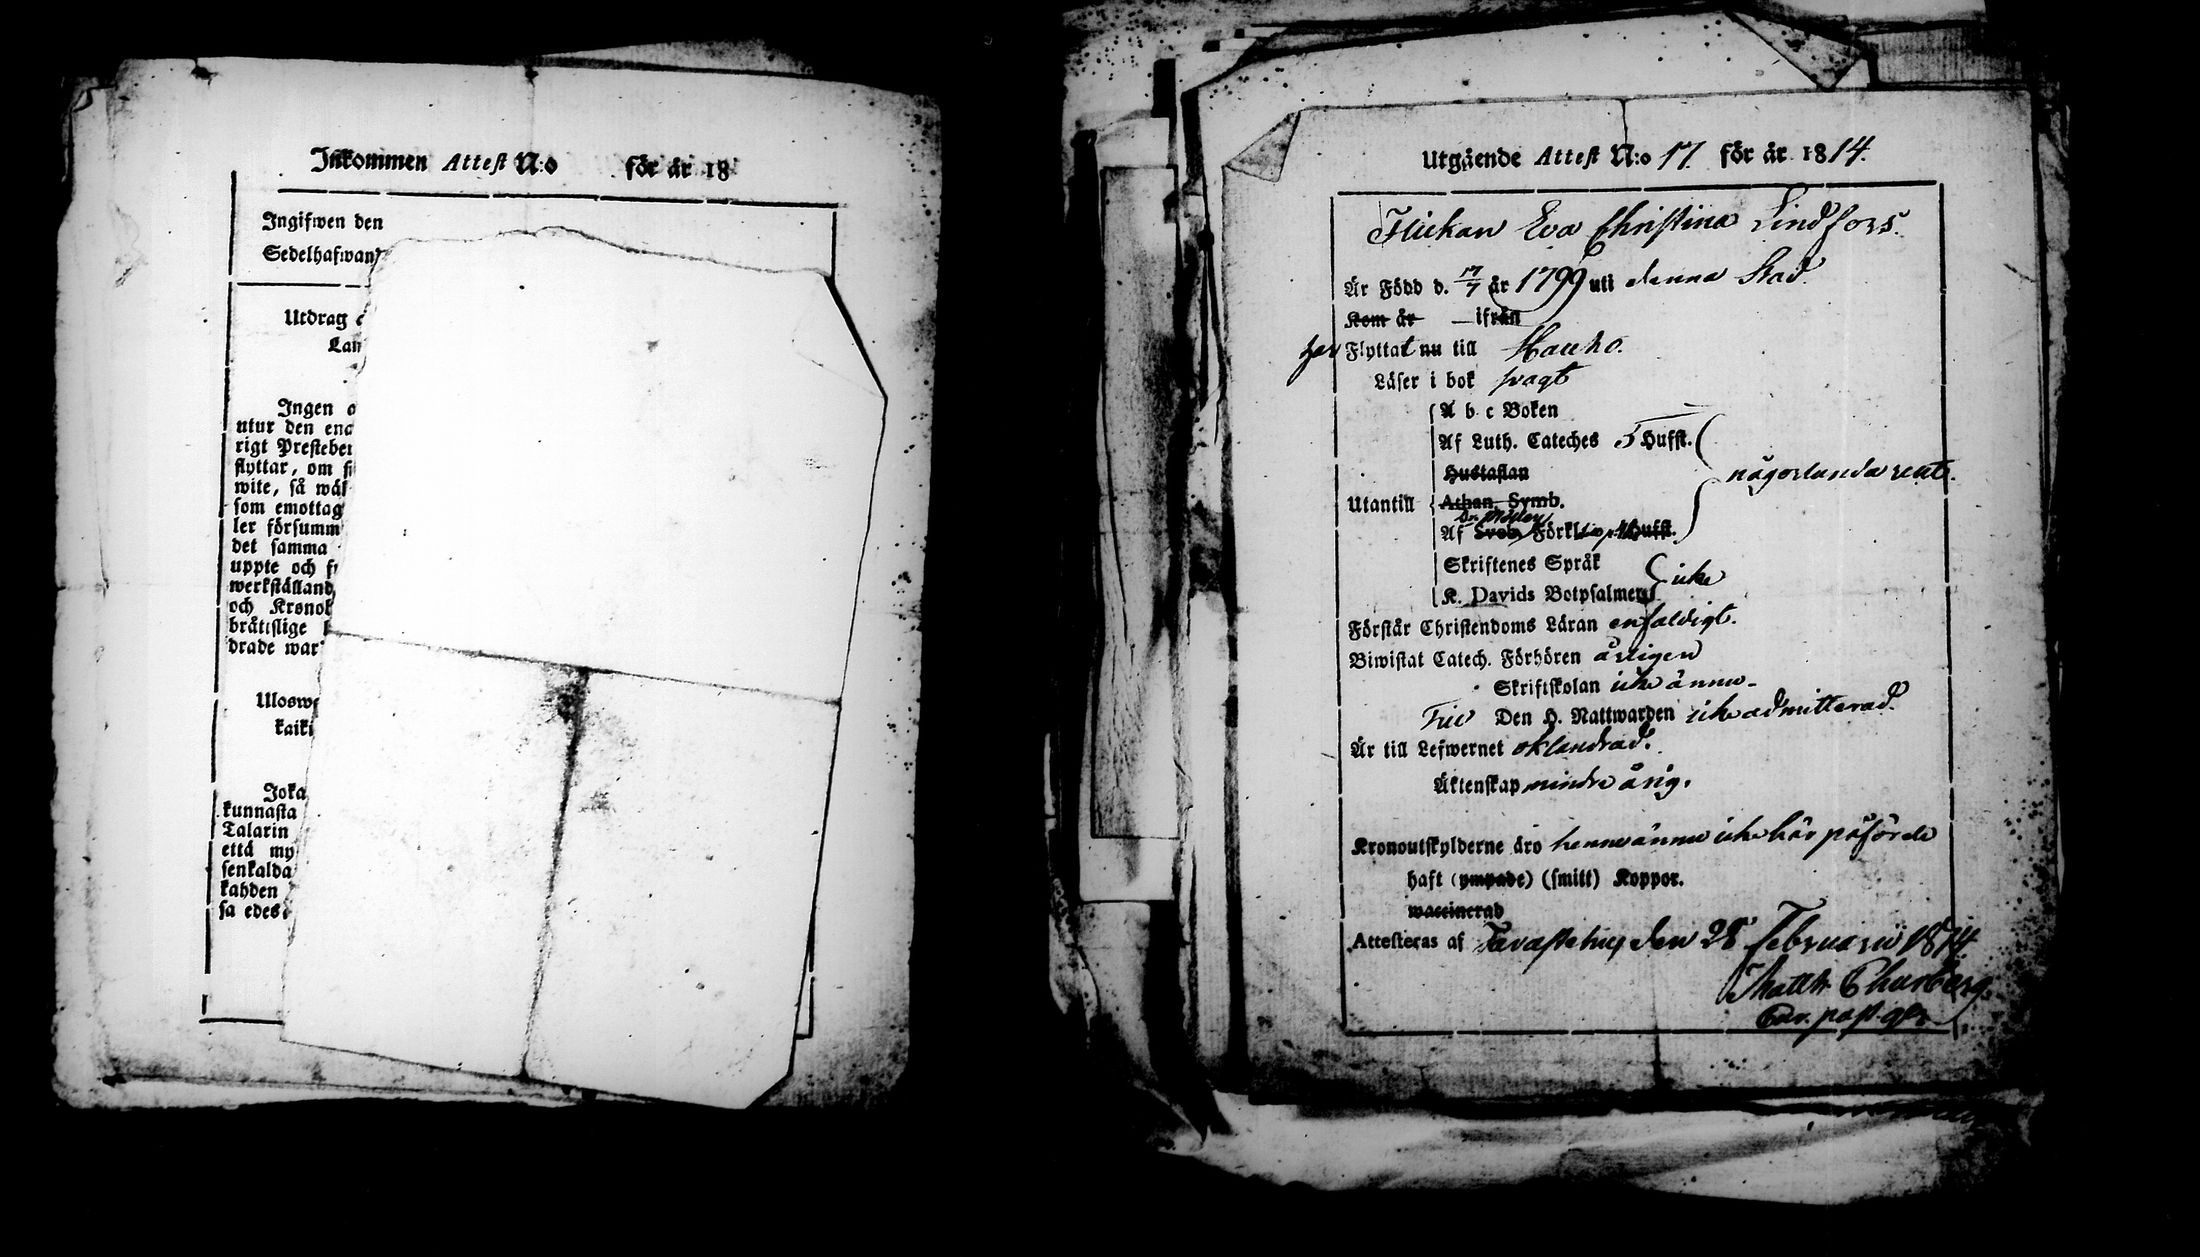 Inkommen Attest N:o för år 18
Ingifwen den
Sedelhafwan
Utdrag
Lan
Ingen o
utur den end
rigt Presteber
flyttar, om
wite, så wäl
som emottag
ler försumm
det samma
uppte och f
werkställand
och Kronob
bråttslige
drade war
Uloswe
kaiki
Joka
kunnasta
Talarin
että my
senkalda
kahden
sa edes
Utgående Attest N:o 17. för år 1814.
Flickan Eva Christina Lindfors.
Är Född d. 17/7 år 1799 uti denna Stad.
Kom år — ifrån
har Flyttat nu till Hauho.
Läser i bok svagt
A b c Boken
Af Luth. Cateches 5 Hufst.
Hustaflan
någorlunda rent.
Utantill Athan. Symb.
Af Sveb. Förkl. Hufst.
Skriftenes Språk
icke
K. Davids Botpsalmer
Förstår Christendoms Läran enfaldigt.
Biwistat Catech. Förhören årligen
Skriftskolan icke ännu
Till Den H. Nattwarden icke admitterad.
Är till Lefwernet oklandrad.
Äktenskap minderårig.
Kronoutskylderne äro henne ännu icke här påförde
haft (ympade) (smitt) Koppor.
waccinerad
Attesteras af Tavastehus den 28 Februarii 1814
Matth.